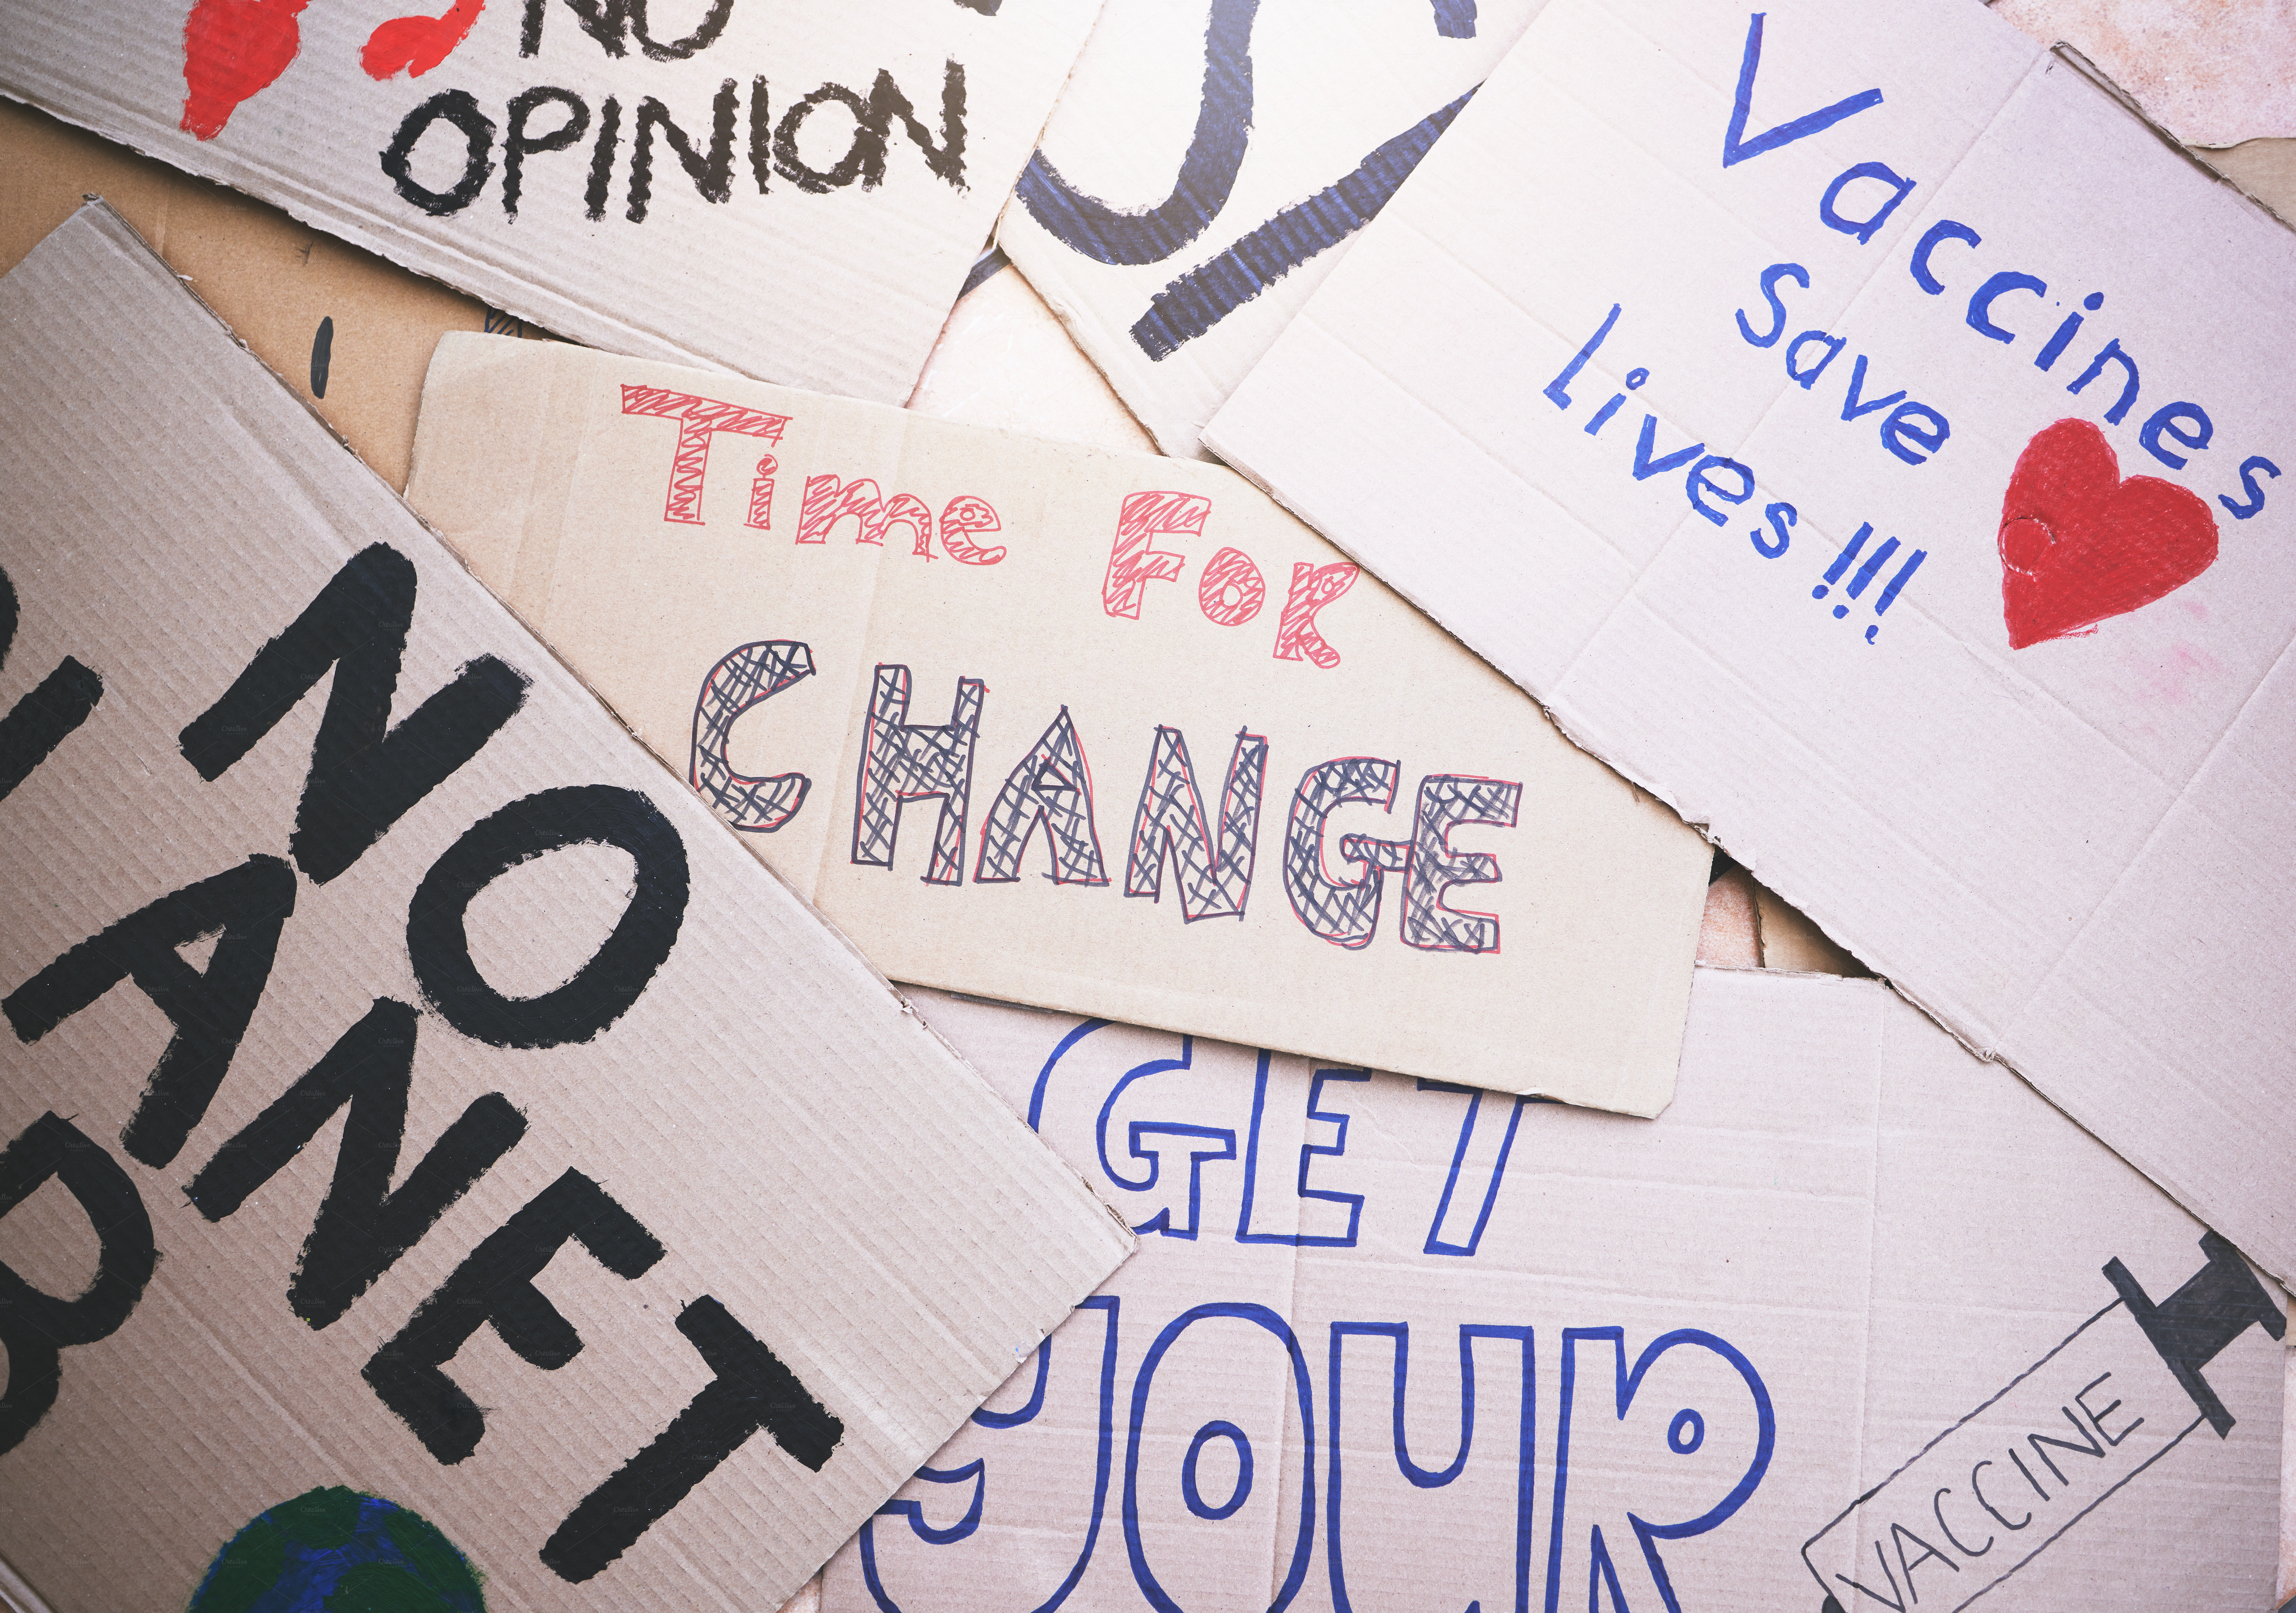 NO
OPINION
Vaccines
Save
lives!!!
Time FOR
CHANGE
NO
ANET
B
GET
YOUR
VACCINE